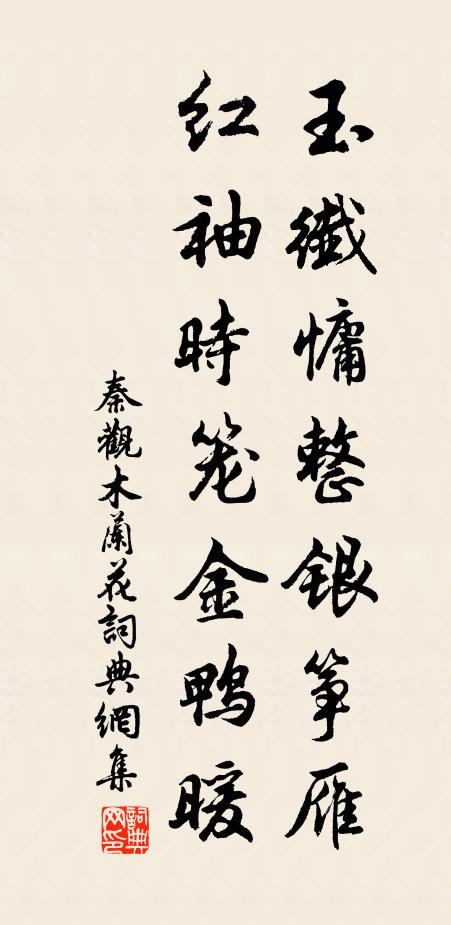 玉纖慵整銀筝雁
紅袖時笼金鴨暖
秦觀木蘭花詞典網集
詞典網印